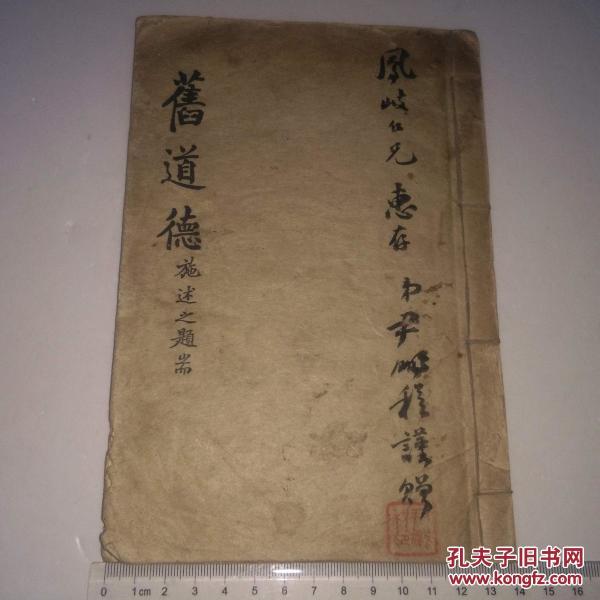 鳳岐仁兄 惠存
弟尹鵬程謹贈
舊道德
施述之題耑
孔夫子旧书网
www.kongfz.com
0 1cm 2 3 4 5 6 7 8 9 10 11 12 13 14 15 16